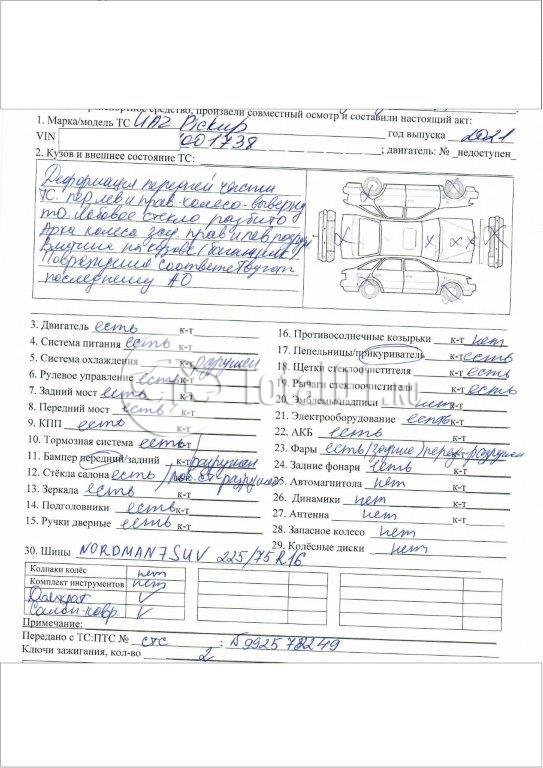 транспортное средство, произвели совместный осмотр и составили настоящий акт:
1. Марка/модель ТС UAZ Pickup год выпуска 2021
VIN 0001738 ; двигатель: № _недоступен_
2. Кузов и внешнее состояние ТС:
Деформация передней части
ТС. пер лев и прав. колесо - вывернуто
то. лобовое стекло разбито
Арка колеса зад прав и лев
Вмятина на кузове /багажник
Повреждения соответствуют
последнему АО
3. Двигатель есть к-т
4. Система питания есть к-т
5. Система охлаждения к-т разрушен
6. Рулевое управление есть к-т
7. Задний мост есть к-т
8. Передний мост есть к-т
9. КПП есть к-т
10. Тормозная система есть к-т
11. Бампер передний/задний к-т разрушен
12. Стёкла салона есть / лоб. разрушено
13. Зеркала есть к-т
14. Подголовники есть к-т
15. Ручки дверные есть к-т
16. Противосолнечные козырьки к-т нет
17. Пепельницы/прикуриватель к-т есть
18. Щетки стеклоочистителя к-т есть
19. Рычаги стеклоочистителя к-т есть
20. Эмблемы/надписи к-т
21. Электрооборудование есть к-т
22. АКБ есть к-т
23. Фары есть /задние / перед. разрушен
24. Задние фонари есть к-т
25. Автомагнитола нет к-т
26. Динамики нет к-т
27. Антенна нет к-т
28. Запасное колесо нет
29. Колёсные диски нет к-т
30. Шины NORDMAN 7 SUV 225/75 R16
Колпаки колёс нет
Комплект инструментов нет
Домкрат V
Салон. ковр V
Примечание:
Передано с ТС:ПТС № СТС ; № 9925 782249
Ключи зажигания, кол-во 2